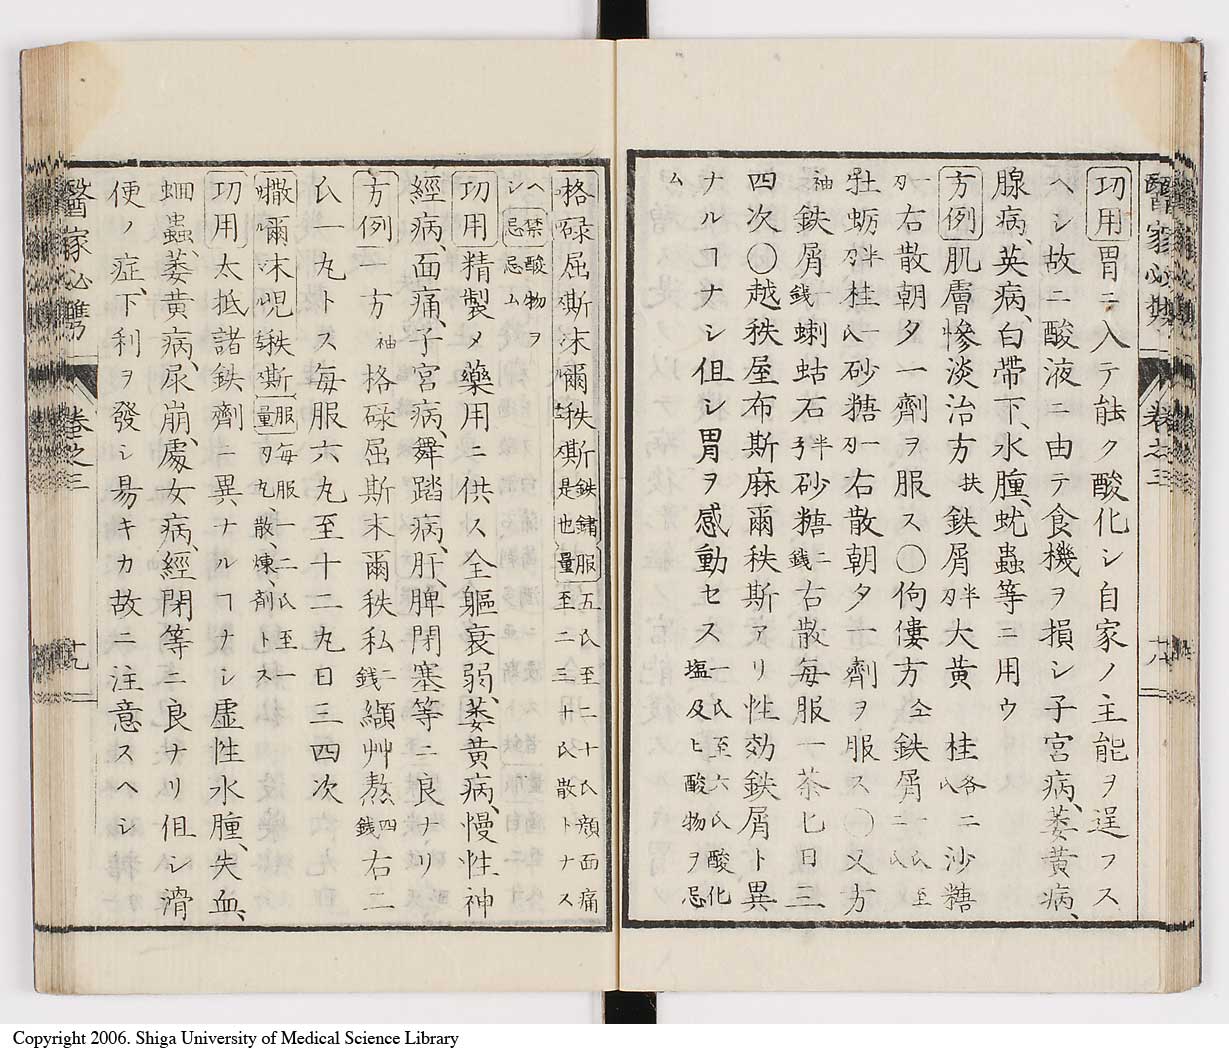 醫家必携 卷之三 十八
功用 胃ニ入テ能ク酸化シ自家ノ主能ヲ逞フス
ヘシ故ニ酸液ニ由テ食機ヲ損シ子宮病、萎黄病、
腺病、英病、白帶下、水腫、蚘蟲等ニ用ウ
方例 肌層慘淡治方 扶 鉄屑 半刄 大黄 桂 各二氏 沙糖
一刄 右散朝夕一劑ヲ服ス〇佝僂方 全 鉄屑 二氏 一氏至
牡蛎 半刄 桂 一氏 砂糖 一刄 右散朝夕一劑ヲ服ス〇又方
袖 鉄屑 錢 蝲蛄石 半弓 砂糖 二錢 右散毎服一茶匕日三
四次〇越秩屋布斯麻爾秩斯アリ性効鉄屑ト異
ナルヿナシ但シ胃ヲ感動セス 一氏至六氏酸化 塩及ヒ酸物ヲ忌
ム
格碌屈斯末爾秩斯 鉄鏽是也 服量 五氏至二十氏顔面痛 至二三十氏散トナス
ヘシ 禁忌 酸物ヲ忌ム
功用 精製メ藥用ニ供ス全軀衰弱、萎黄病、慢性神
經病、面痛、子宮病、舞踏病、肝、脾閉塞等ニ良ナリ
方例 一方 袖 格碌屈斯末爾秩私 二錢 纈艸熬 四錢 右二
氏一丸トス毎服六丸至十二丸日三四次
撒爾末兒秩斯 服量 毎服一二氏至一刄丸、散、煉、劑トス
功用 太抵諸鉄劑ニ異ナルヿナシ虚性水腫、失血、
蛔蟲、萎黄病、尿崩、處女病、經閉等ニ良ナリ但シ滑
便ノ症、下利ヲ發シ易キカ故ニ注意スヘシ
醫家必攜 卷之三 十九
Copyright 2006. Shiga University of Medical Science Library